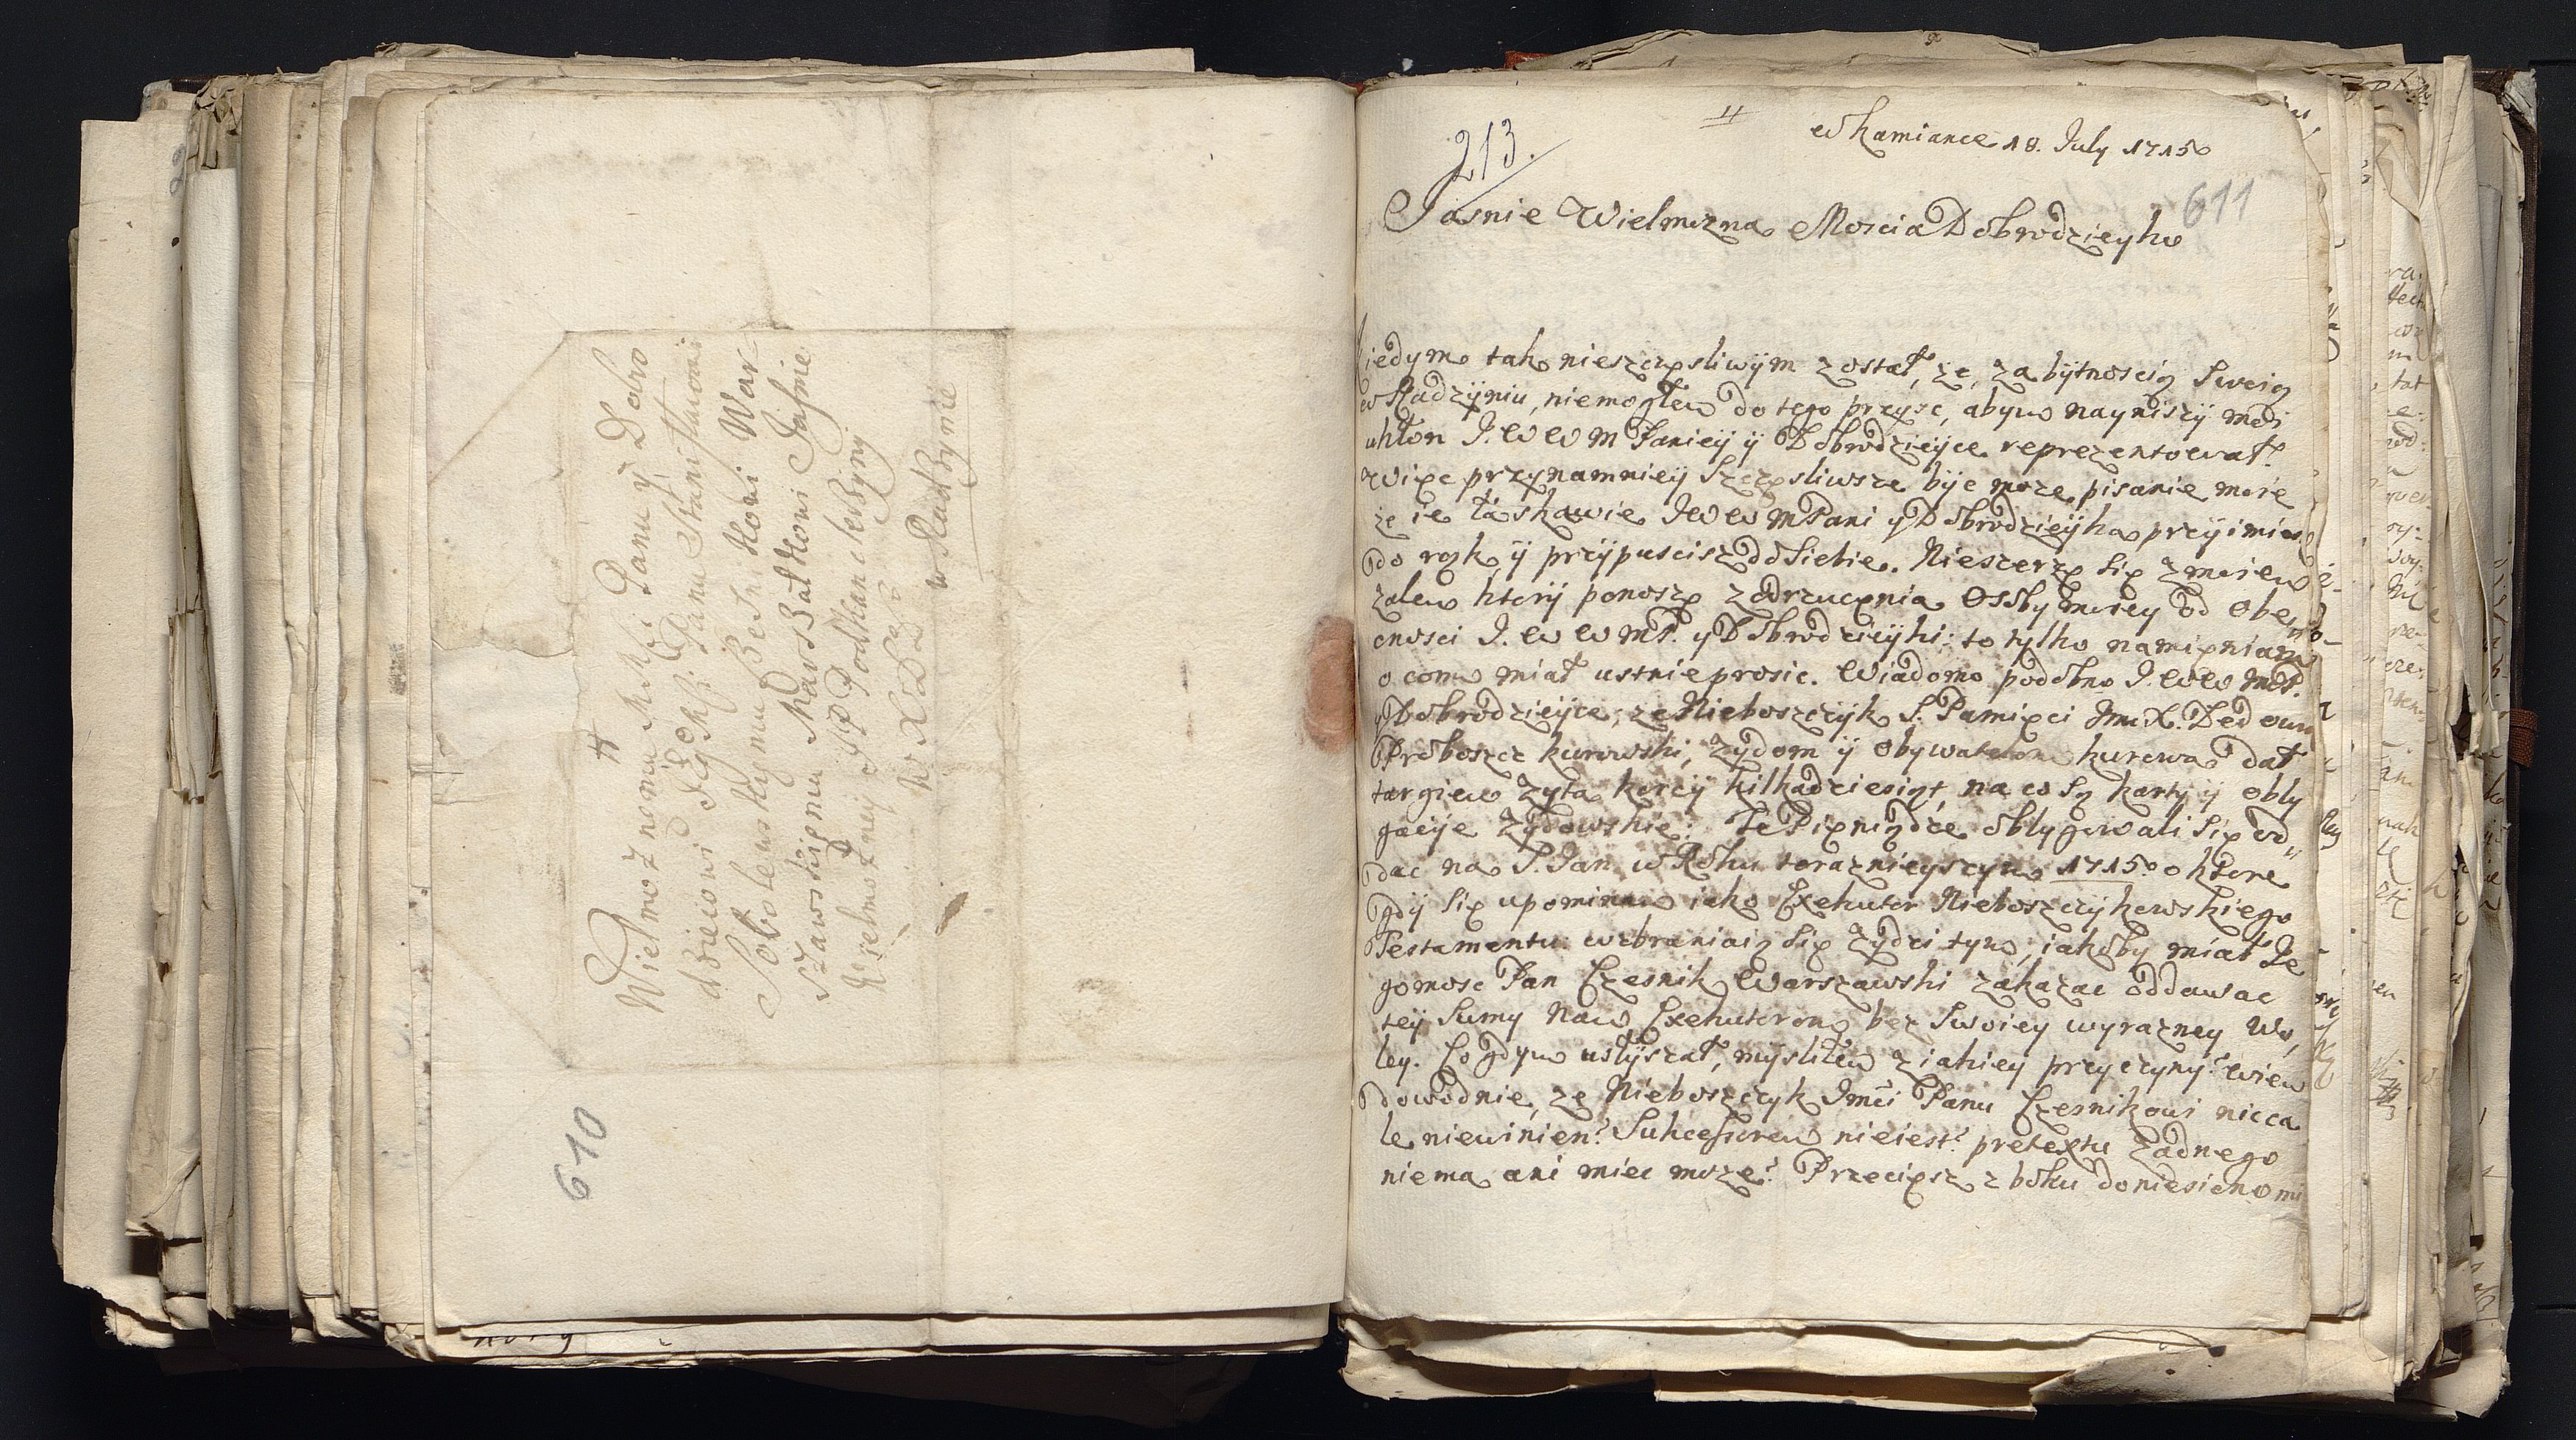 Wielmoznemu Mści Panu y Dobro
dzieiowi Je Mści Panu Stanisławowi
Sobolewskiemu
szawskiemu Marszałkowi Jaśnie
Wielmożney JP Podkanclerzyny
W X L
w Radzynie
610
213.
w Kamiance 18. July 1715
611
Jasnie Wielmozna Moscia Dobrodzieyko
kiedym tak nieszczęsliwym został, ze, za bytnoscią Swoią
w Radzyniu, niemogłem do tego przysc, abym nayniszy moi
ukłon J. W W M Paniey y Dobrodzieyce reprezentował.
więc przynamniey szczęsliwsze byc moze pisanie moie
ze ie łaskawie JWWMPani y Dobrodzieyka przyimiesz
do rąk y przypuscisz do Siebie. Nieszerzę się z moiem
zalem ktory ponoszę z odrzucęnia Osoby moiey od Obe
cnosci J. W W MP. y Dobrodzieyki: to tylko namięniam
o com miał ustnie prosic. Wiadomo podobno J. WW MP.
y Dobrodzieyce, ze Nieboszczyk S. Pamięci JmX.
Proboszcz kurowski, zydom y Obywatelom kurowa dał
targiem zyta korcy kilkadziesiąt, na co są karty y obly
gacye zydowskie: Te Pięniądze oblygowali się od
dac na S. Jan w Roku teraznieyszym 1715. o ktore
gdy się upominam iako Exekutor Nieboszczykowskiego
Testamentu wzbraniaią się zydzi tym, iakoby miał Je
gomosc Pan Czesnik Warszawski zakazac oddawac
tey Sumy Nam Exekutorom bez Swoiey wyrazney Wo,
ley. Co gdym usłyszał, myslilem z iakiey przyczyny? wiem
dowodnie, ze Nieboszczyk Jmci Panu Czesnikowi nicca
le niewinien? Sukcessorem nieiest? pretextu zadnego
niema ani miec moze? Przecięsz z boku doniesieno mi